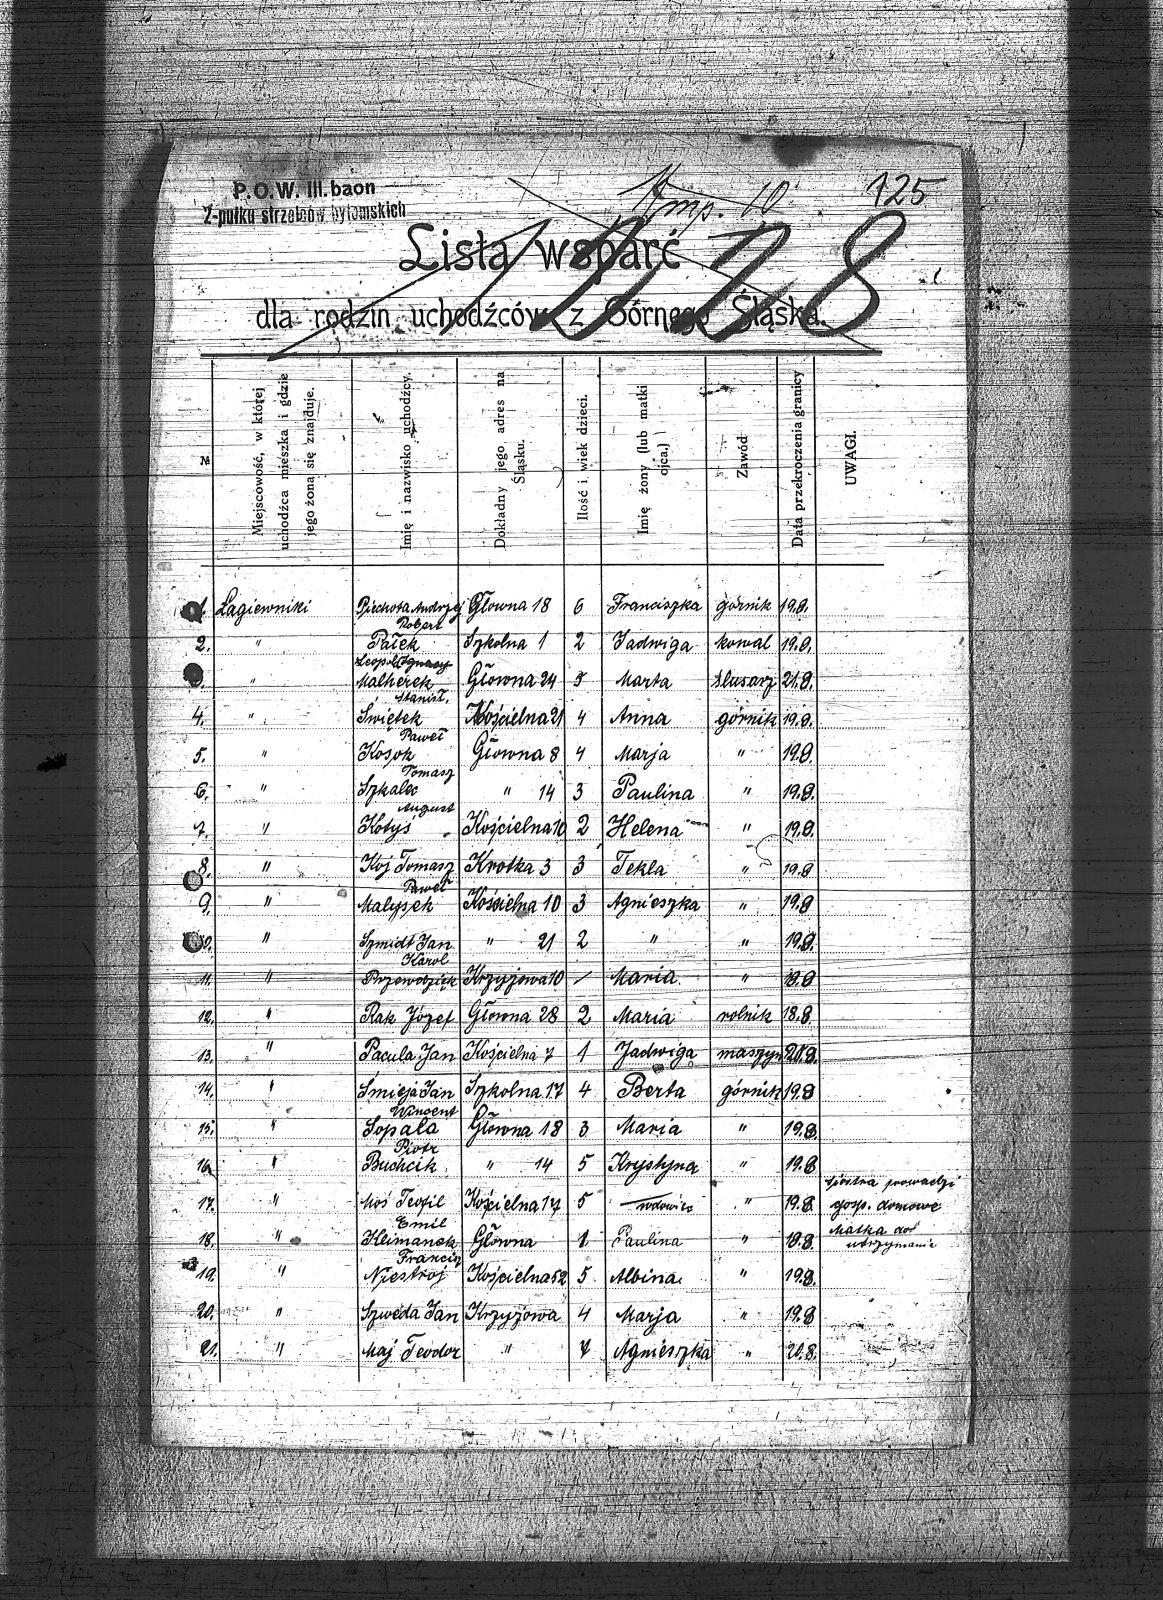 P.O.W. III. baon
2-pułku strzelców bytomskich
125
Lista wsparć
dla rodzin uchodźców z Górnego Śląska.
№ Miejscowość, w której uchodźca mieszka i gdzie jego żona się znajduje. Imię i nazwisko uchodźcy. Dokładny jego adres na Śląsku. Ilość i wiek dzieci. Imię żony (lub matki ojca,) Zawód Data przekroczenia granicy UWAGI.
1. Łagiewniki Piechota Andrzej Głowna 18 6 Franciszka górnik 19.8.
Robert
2. " Pałek Szkolna 1 2 Jadwiga kowal 19.8.
" Malherek Głowna 24 Marta ślusarz 21.8.
Stanisł.
4. " Świętek Kościelna 21 4 Anna górnik 19.8.
Paweł
5. " Kosok Głowna 8 4 Marja " 19.8.
Tomasz
6. " Szkalec " 14 3 Paulina " 19.8.
August
7. " Kotyś Kościelna 10 2 Helena " 19.8.
8. " Koj Tomasz Krotka 3 3 Tekla " 19.8
Paweł
9. " Malysek Kościelna 10 3 Agnieszka " 19.8
" Szmidt Jan " 21 2 " " 19.8.
Karol
11. " Krzyżowa 10 / Maria "
12. " Rak Józef Głowna 28 2 Maria rolnik 18.8.
13. " Pacula Jan Kościelna 7 1 Jadwiga maszyn 21.8.
14. " Śmieja Jan Szkolna 17 4 Berta górnik 19.8
Wincent
15. " Sopala Głowna 18 3 Maria " 19.8.
Piotr
16. " Buchcik " 14 5 Krystyna " 19.8
siostra prowadzi
17. " Moś Teofil Kościelna 17 5 wdowiec " 19.8. gosp. domowe
Emil Matka do
18. " Klimanek Główna 1 Paulina " 19.8. utrzymania
Francis
19. " Niestrój Kościelna 52 5 Albina " 19.8.
20. " Szweda Jan Krzyżowa 4 Marja " 19.8
21. " Maj Teodor " Agnieszka " 20.8.